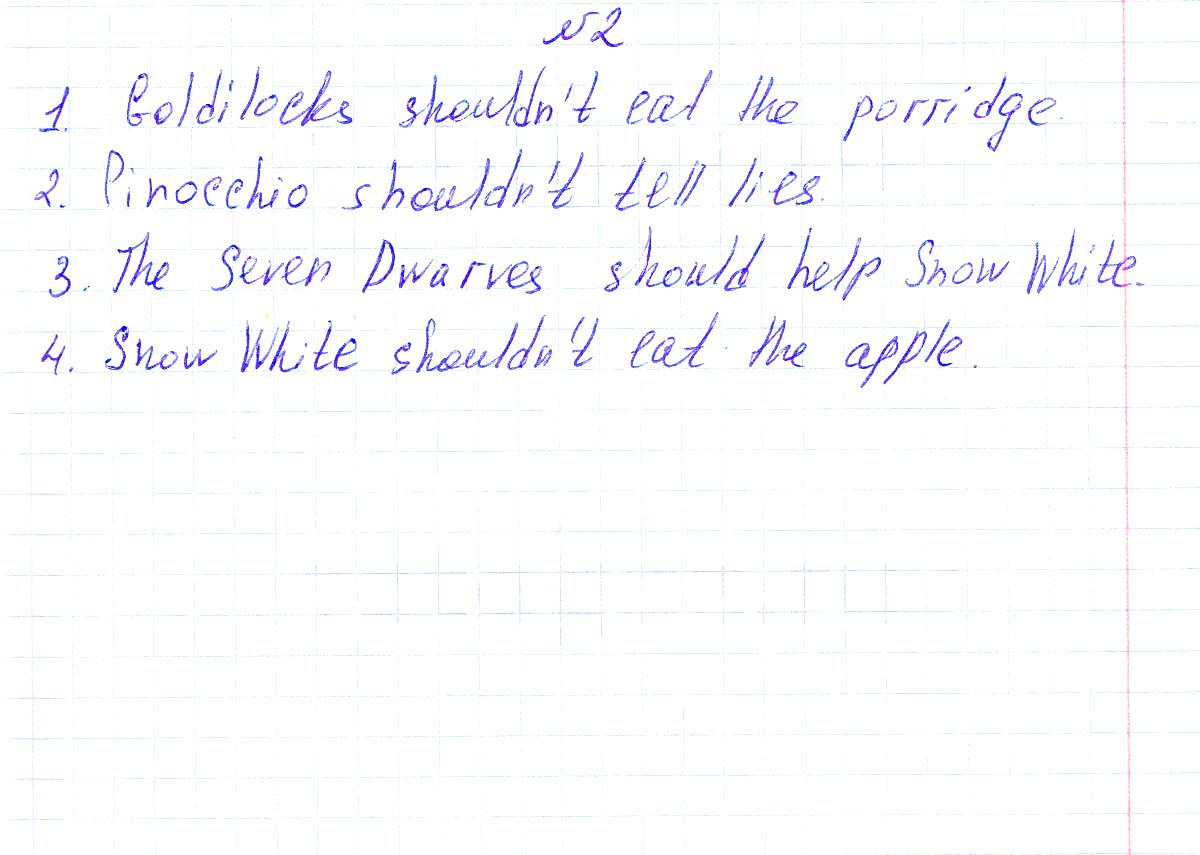 №2
1. Goldilocks shouldn't eat the porridge.
2. Pinocchio shouldn't tell lies.
3. The Seven Dwarves should help Snow White.
4. Snow White shouldn't eat the apple.